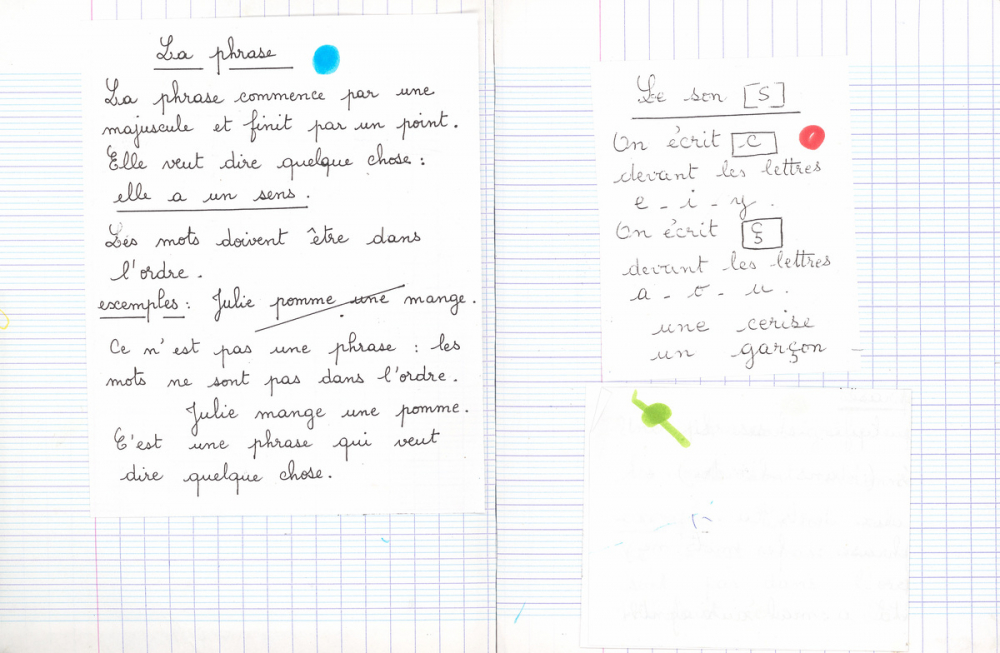 La phrase
La phrase commence par une
majuscule et finit par un point.
Elle veut dire quelque chose :
elle a un sens.
Les mots doivent être dans
l'ordre.
exemples : Julie pomme une mange.
Ce n'est pas une phrase : les
mots ne sont pas dans l'ordre.
Julie mange une pomme.
C'est une phrase qui veut
dire quelque chose.
Le son [s]
On écrit c
devant les lettres
e - i - y.
On écrit ç
devant les lettres
a - o - u.
une cerise
un garçon